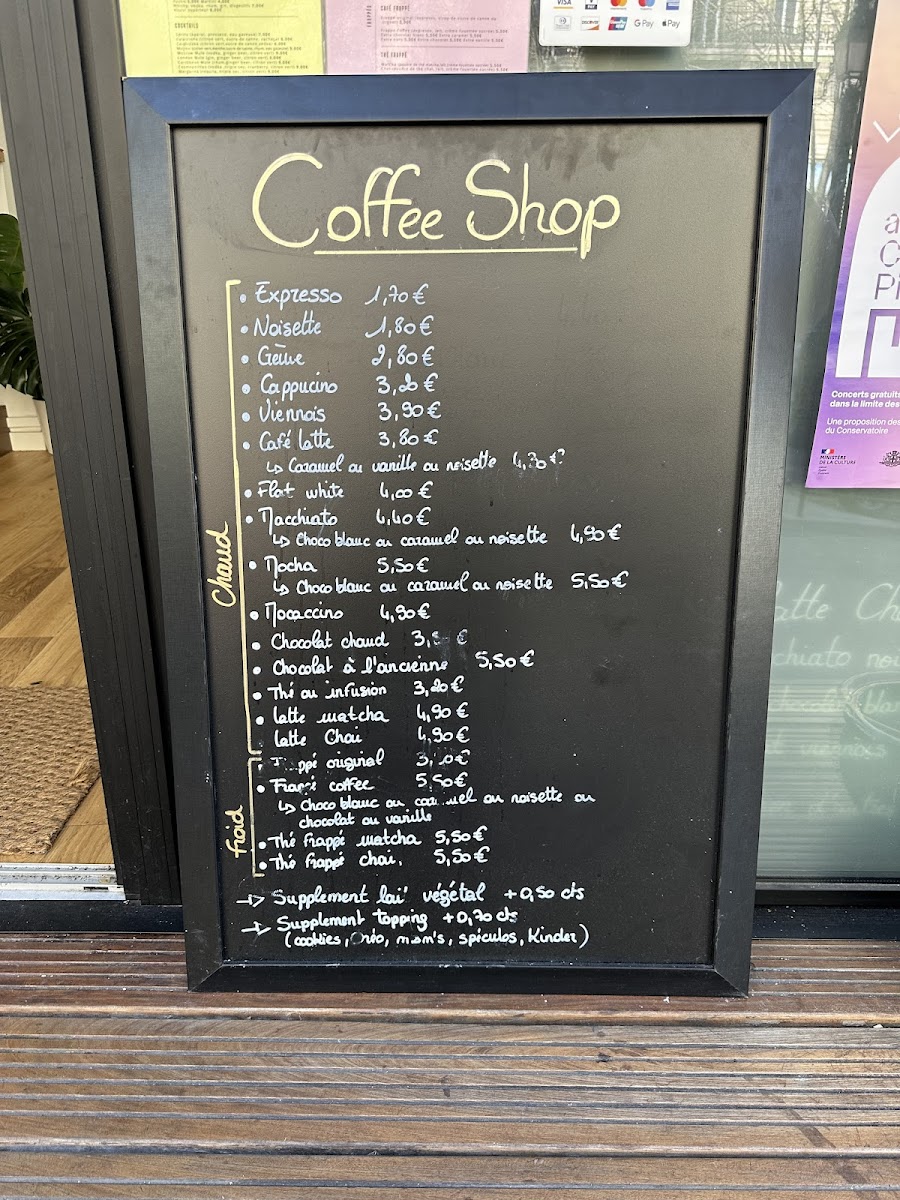 COCKTAILS
FRAPPÉS
CAFÉ FRAPPÉ
THÉ FRAPPÉ
VISA
DISCOVER
G Pay
Pay
Coffee Shop
Chaud
• Expresso 1,70 €
• Noisette 1,80 €
• Crème 2,80 €
• Cappucino 3,20 €
• Viennois 3,90 €
• Café latte 3,80 €
↳ Caramel ou vanille ou noisette 4,30 €
• Flat white 4,00 €
• Macchiato 4,40 €
↳ Choco blanc ou caramel ou noisette 4,90 €
• Mocha 5,50 €
↳ Choco blanc ou caramel ou noisette 5,50 €
• Mocaccino 4,90 €
• Chocolat chaud €
• Chocolat à l'ancienne 5,50 €
• Thé ou infusion 3,20 €
• latte matcha 4,90 €
• latte Chai 4,90 €
Froid
• Frappé original
• Frappé coffee 5,50 €
↳ Choco blanc ou caramel ou noisette ou
chocolat ou vanille
• Thé frappé matcha 5,50 €
• Thé frappé chai. 5,50 €
→ Supplement lait végétal + 0,50 cts
→ Supplement topping + 0,70 cts
(cookies, Oréo, m&m's, spéculos, Kinder)
Concerts gratuits
dans la limite des
Une proposition des
du Conservatoire
MINISTÈRE
DE LA CULTURE